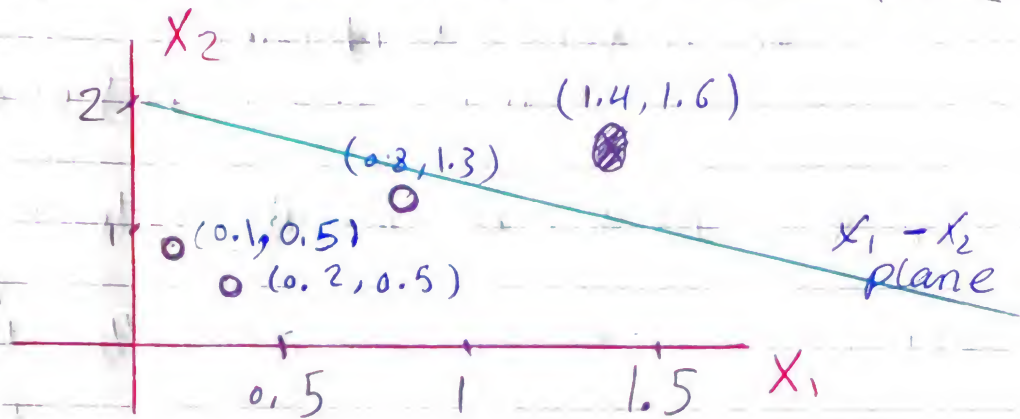 X2
2
(1.4, 1.6)
(0.8, 1.3)
1
(0.1, 0.5)
(0.2, 0.5)
x1 - x2
plane
0.5 1 1.5 X1